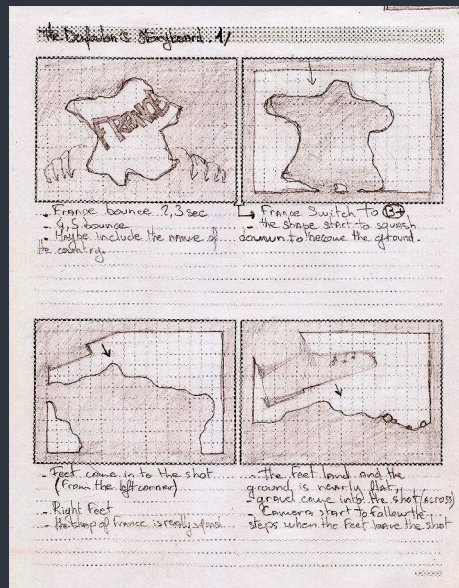 Storyboard 1/
FRANCE
- France bounce 2,3 sec
- 4,5 bounce
- Maybe include the name of
the country.
France switch to B+
- the shape start to squash
down to become the ground.
- Feet come in to the shot
(from the left corner)
- Right Feet
- the shap of France is really squash
- The feet land and the
ground is nearly flat.
- gravel come into the shot (across)
- Camera start to follow the
steps when the feet leave the shot